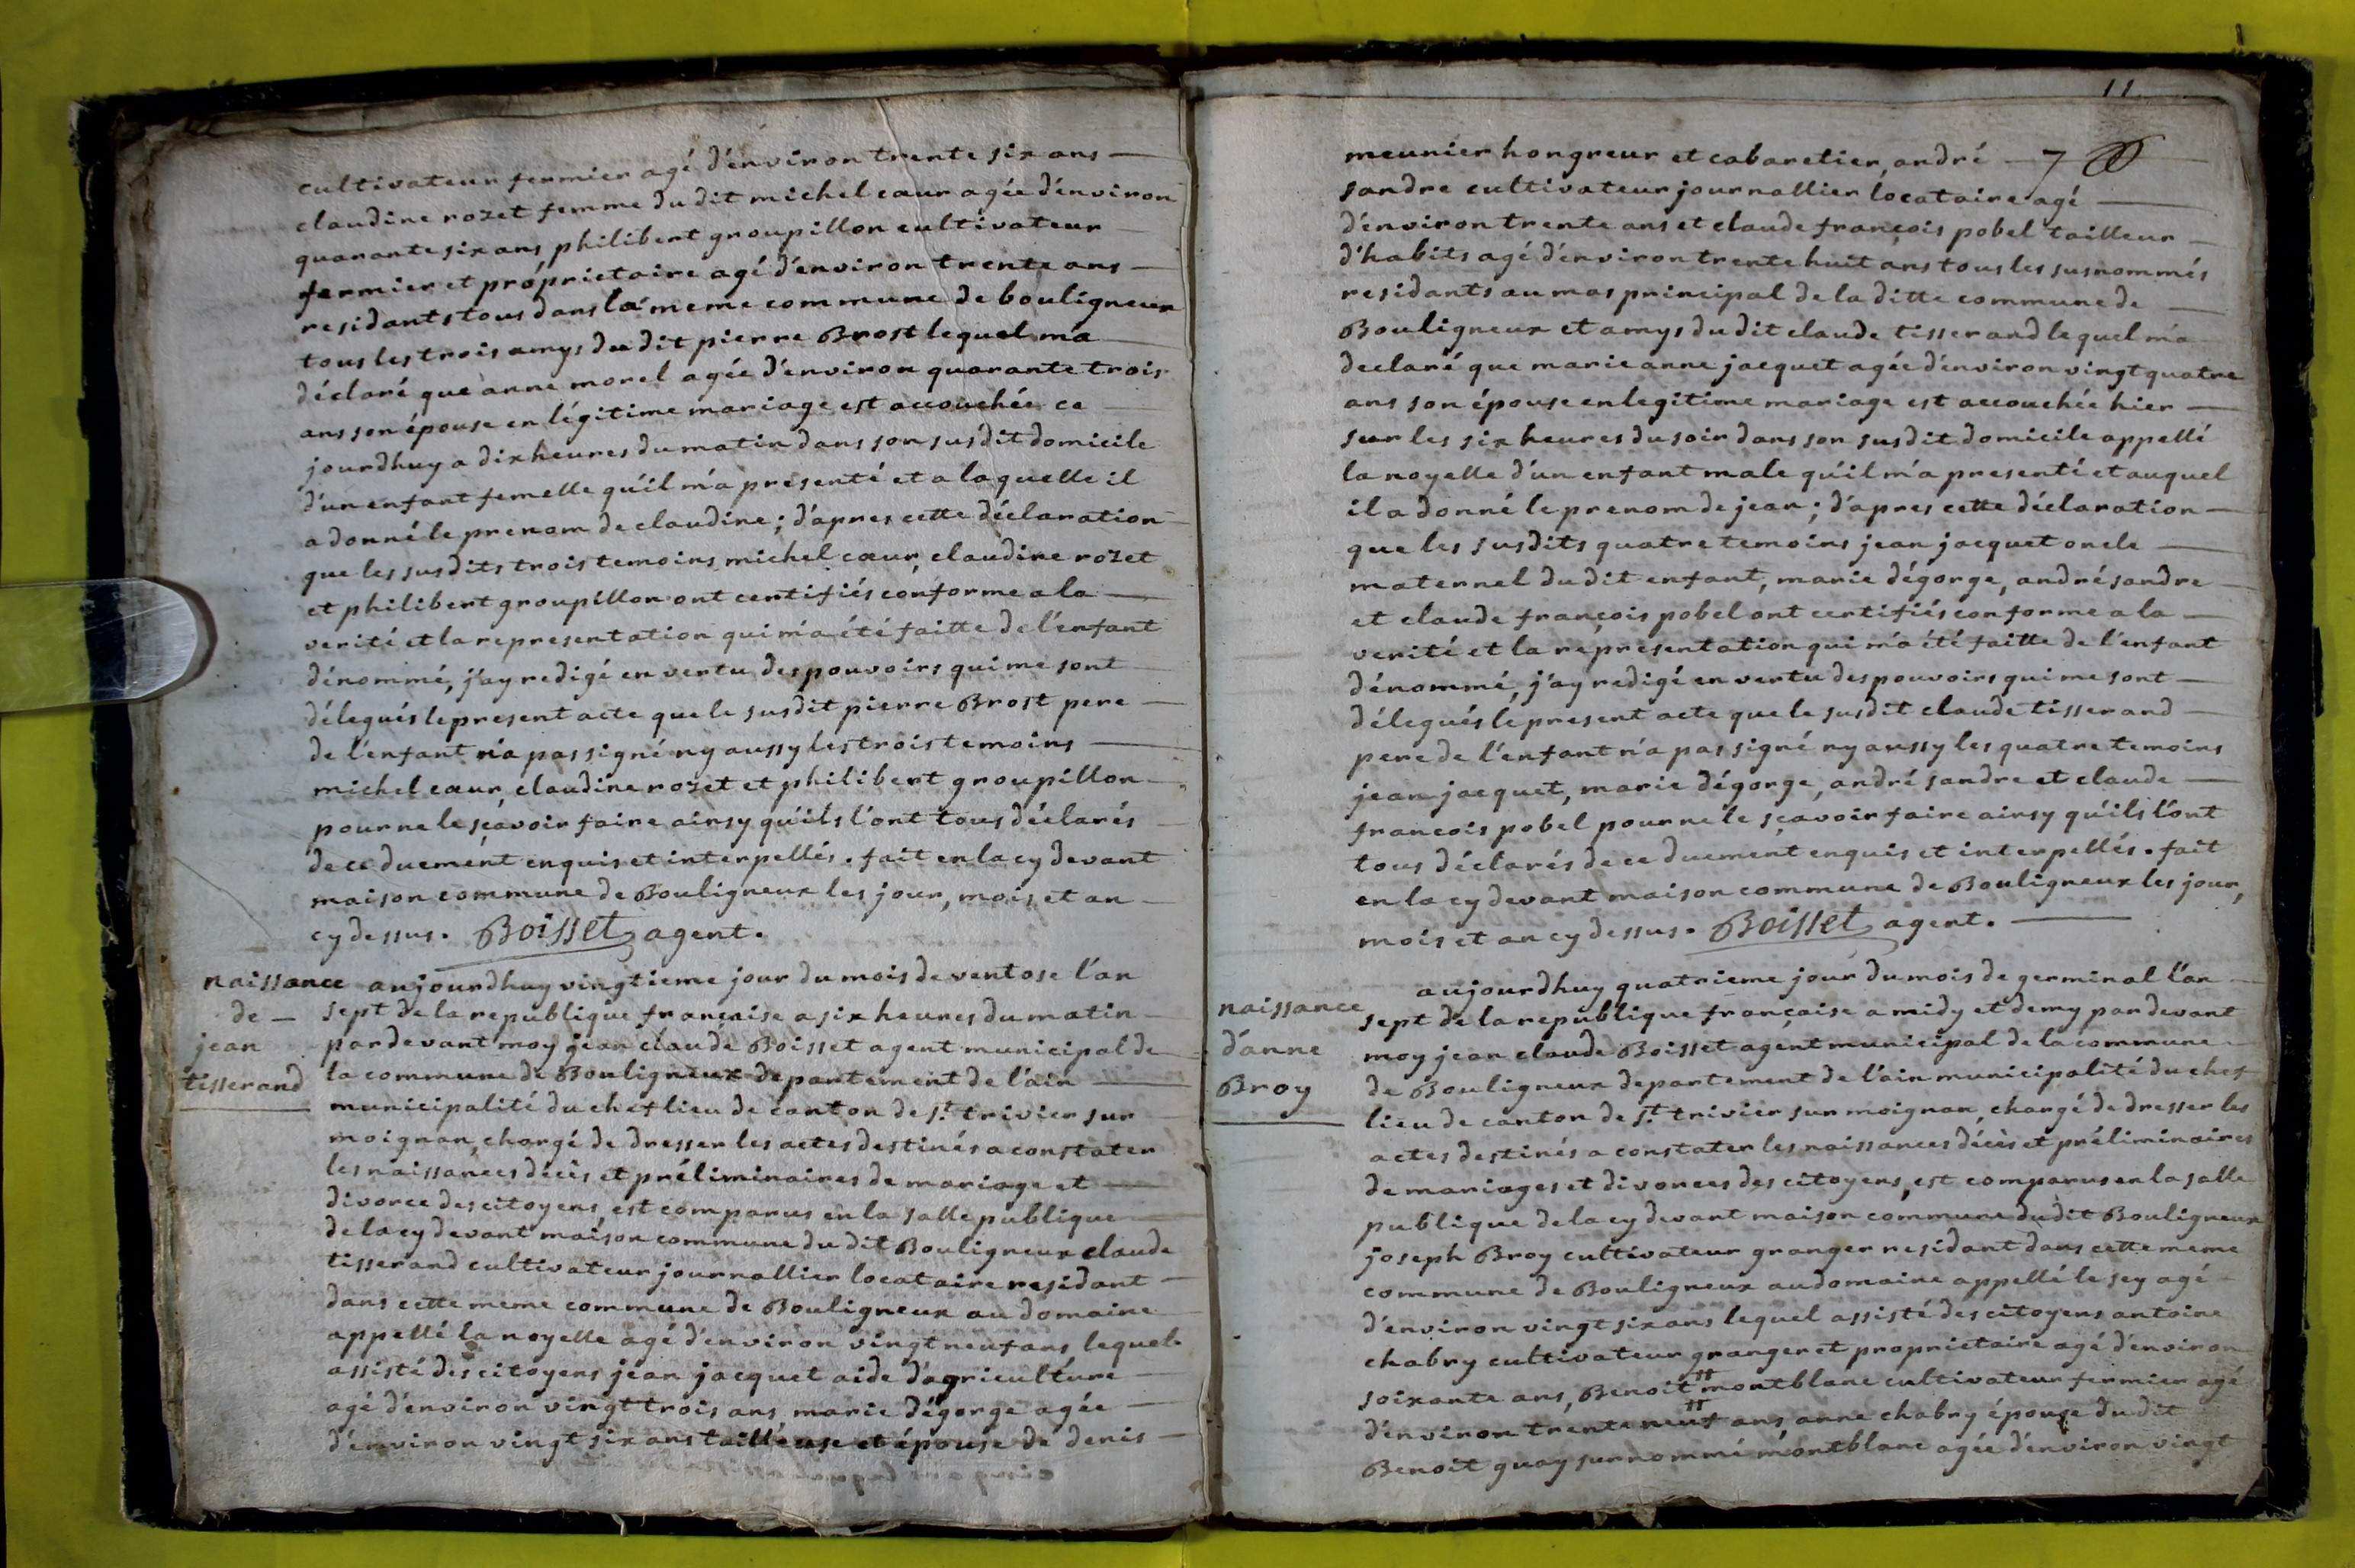 cultivateur fermier agé d'énviron trente six ans
claudine rozet femme du dit michel cœur agée d'énviron
quarante six ans philibert groupillon cultivateur
fermier et proprietaire agé d'énviron trente ans
residants tous dans la meme commune de bouligneux
tous les trois amys du dit pierre Brost lequel m'a
déclaré que anne morel agée d'énviron quarante trois
ans son épouse en légitime mariage est accouchée ce
jourdhuy a dix heures du matin dans son susdit domicile
d'un enfant femelle qu'il m'a présenté et a laquelle il
a donné le prenom de claudine ; d'apres cette déclaration
que les susdits trois temoins michel cœur, claudine rozet
et philibert groupillon ont certifiés conforme a la
verité et la representation qui m'a été faitte de l'enfant
dénommé, j'ay redigé en vertu des pouvoirs qui me sont
délegués le present acte que le susdit pierre Brost pere
de l'enfant n'a pas signé ny aussy les trois temoins
michel cœur, claudine rozet et philibert groupillon
pour ne le sçavoir faire ainsy qu'ils l'ont tous déclarés
de ce duement enquis et interpellés. fait en la cy devant
maison commune de Bouligneux les jour, mois, et an
cy dessus. Boisset agent.
naissance
de
jean
tisserand
aujourdhuy vingtieme jour du mois de ventose l'an
sept de la republique française a six heures du matin
pardevant moy jean claude Boisset agent municipal de
la commune de Bouligneux departement de l'ain
municipalité du chef lieu de canton de s.t trivier sur
moignan, chargé de dresser les actes destinés a constater
les naissances décès et préliminaires de mariage et
divorce des citoyens, est comparus en la salle publique
de la cy devant maison commune du dit Bouligneux claude
tisserand cultivateur journallier locataire residant
dans cette meme commune de Bouligneux au domaine
appellé la noyelle agé d'énviron vingt neuf ans lequel
assisté des citoyens jean jacquet aide d'agriculture
agé d'énviron vingt trois ans, marie dégorge agée
d'énviron vingt six ans tailleuse et épouse de denis
11
7
meunier hongreur et cabaretier, andré
sandre cultivateur journallier locataire agé
d'énviron trente ans et claude françois pobel tailleur
d'habits agé d'énviron trente huit ans tous les susnommés
residants au mas principal de la ditte commune de
Bouligneux et amys du dit claude tisserand lequel m'a
declaré que marie anne jacquet agée d'énviron vingt quatre
ans son épouse en legitime mariage est accouchée hier
sur les six heures du soir dans son susdit domicile appellé
la noyelle d'un enfant male qu'il m'a presenté et auquel
il a donné le prenom de jean ; d'apres cette déclaration
que les susdits quatre temoins jean jacquet oncle
maternel du dit enfant, marie dégorge, andré sandre
et claude françois pobel ont certifiés conforme a la
verité et la representation qui m'a été faitte de l'enfant
dénommé, j'ay redigé en vertu des pouvoirs qui me sont
délegués le present acte que le susdit claude tisserand
pere de l'enfant n'a pas signé ny aussy les quatre temoins
jean jacquet, marie dégorge, andré sandre et claude
francois pobel pour ne le sçavoir faire ainsy qu'ils l'ont
tous déclarés de ce duement enquis et interpellés. fait
en la cy devant maison commune de Bouligneux les jour,
mois et an cy dessus. Boisset agent.
naissance
d'anne
Broy
aujourdhuy quatrieme jour du mois de germinal l'an
sept de la republique française a midy et demy pardevant
moy jean claude Boisset agent municipal de la commune
de Bouligneux departement de l'ain municipalité du chef
lieu de canton de s.t trivier sur moignan, chargé de dresser les
actes destinés a constater les naissances décès et préliminaires
de mariages et divorces des citoyens, est comparus en la salle
publique de la cy devant maison commune du dit Bouligneux
joseph Broy cultivateur granger residant dans cette meme
commune de Bouligneux au domaine appellé le sey agé
d'énviron vingt six ans lequel assisté des citoyens antoine
chabry cultivateur granger et proprietaire agé d'énviron
soixante ans, Benoit montblanc cultivateur fermier agé
d'énviron trente neuf ans, anne chabry épouse du dit
Benoit guay surnommé montblanc agée d'énviron vingt